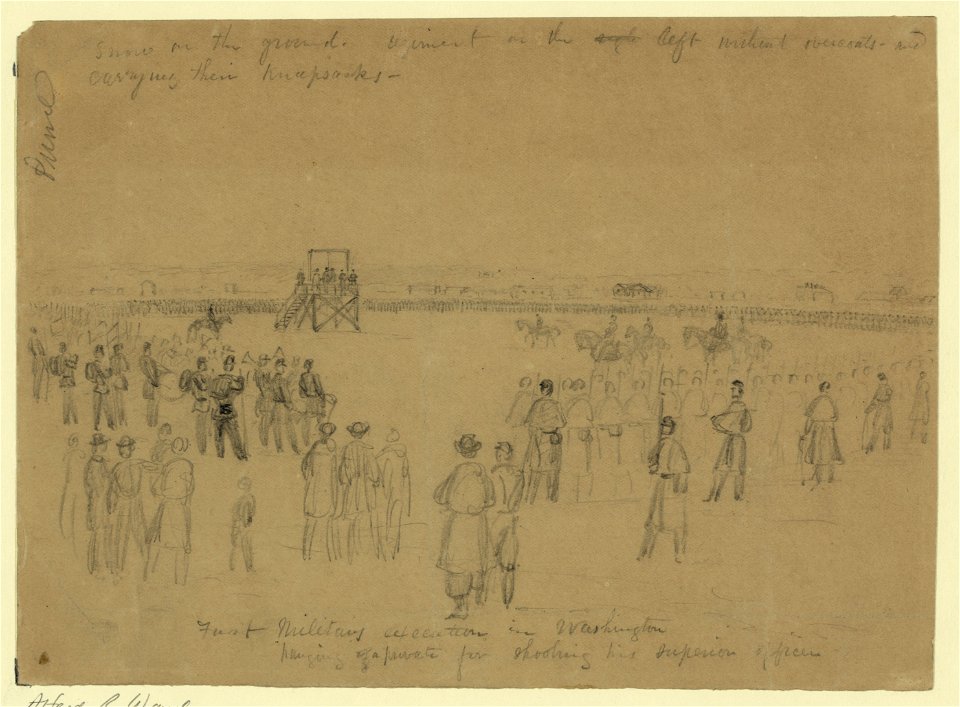 Snow on the ground. regiment on the left without overcoats - and
carrying their knapsacks -
First Military execution in Washington
hanging of a private for shooting his superior officer
Alfred R Waud